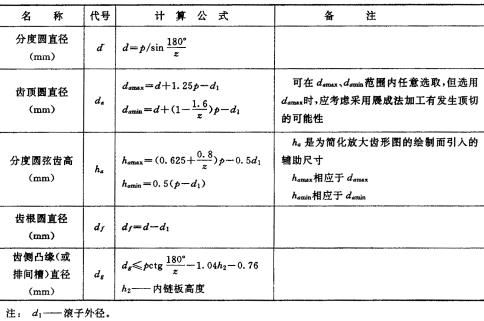 名 称 代号 计 算 公 式 备 注
分度圆直径
(mm)
d
d=p/sin 180°/z
齿顶圆直径
(mm)
da
damax=d+1.25p-d1
damin=d+(1-1.6/z)p-d1
可在damax、damin范围内任意选取,但选用
damax时,应考虑采用展成法加工有发生顶切
的可能性
分度圆弦齿高
(mm)
ha
hamax=(0.625+0.8/z)p-0.5d1
hamin=0.5(p-d1)
ha是为简化放大齿形图的绘制而引入的
辅助尺寸
hamax相应于damax
hamin相应于damin
齿根圆直径
(mm)
df
df=d-d1
齿侧凸缘(或
排间槽)直径
(mm)
dg
dg≤pctg 180°/z-1.04h2-0.76
h2——内链板高度
注: d1——滚子外径。